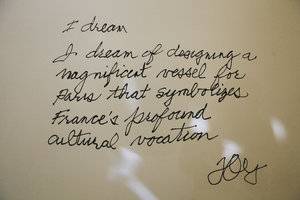 I dream
I dream of designing a
magnificent vessel for
Paris that symbolizes
France's profound
cultural vocation